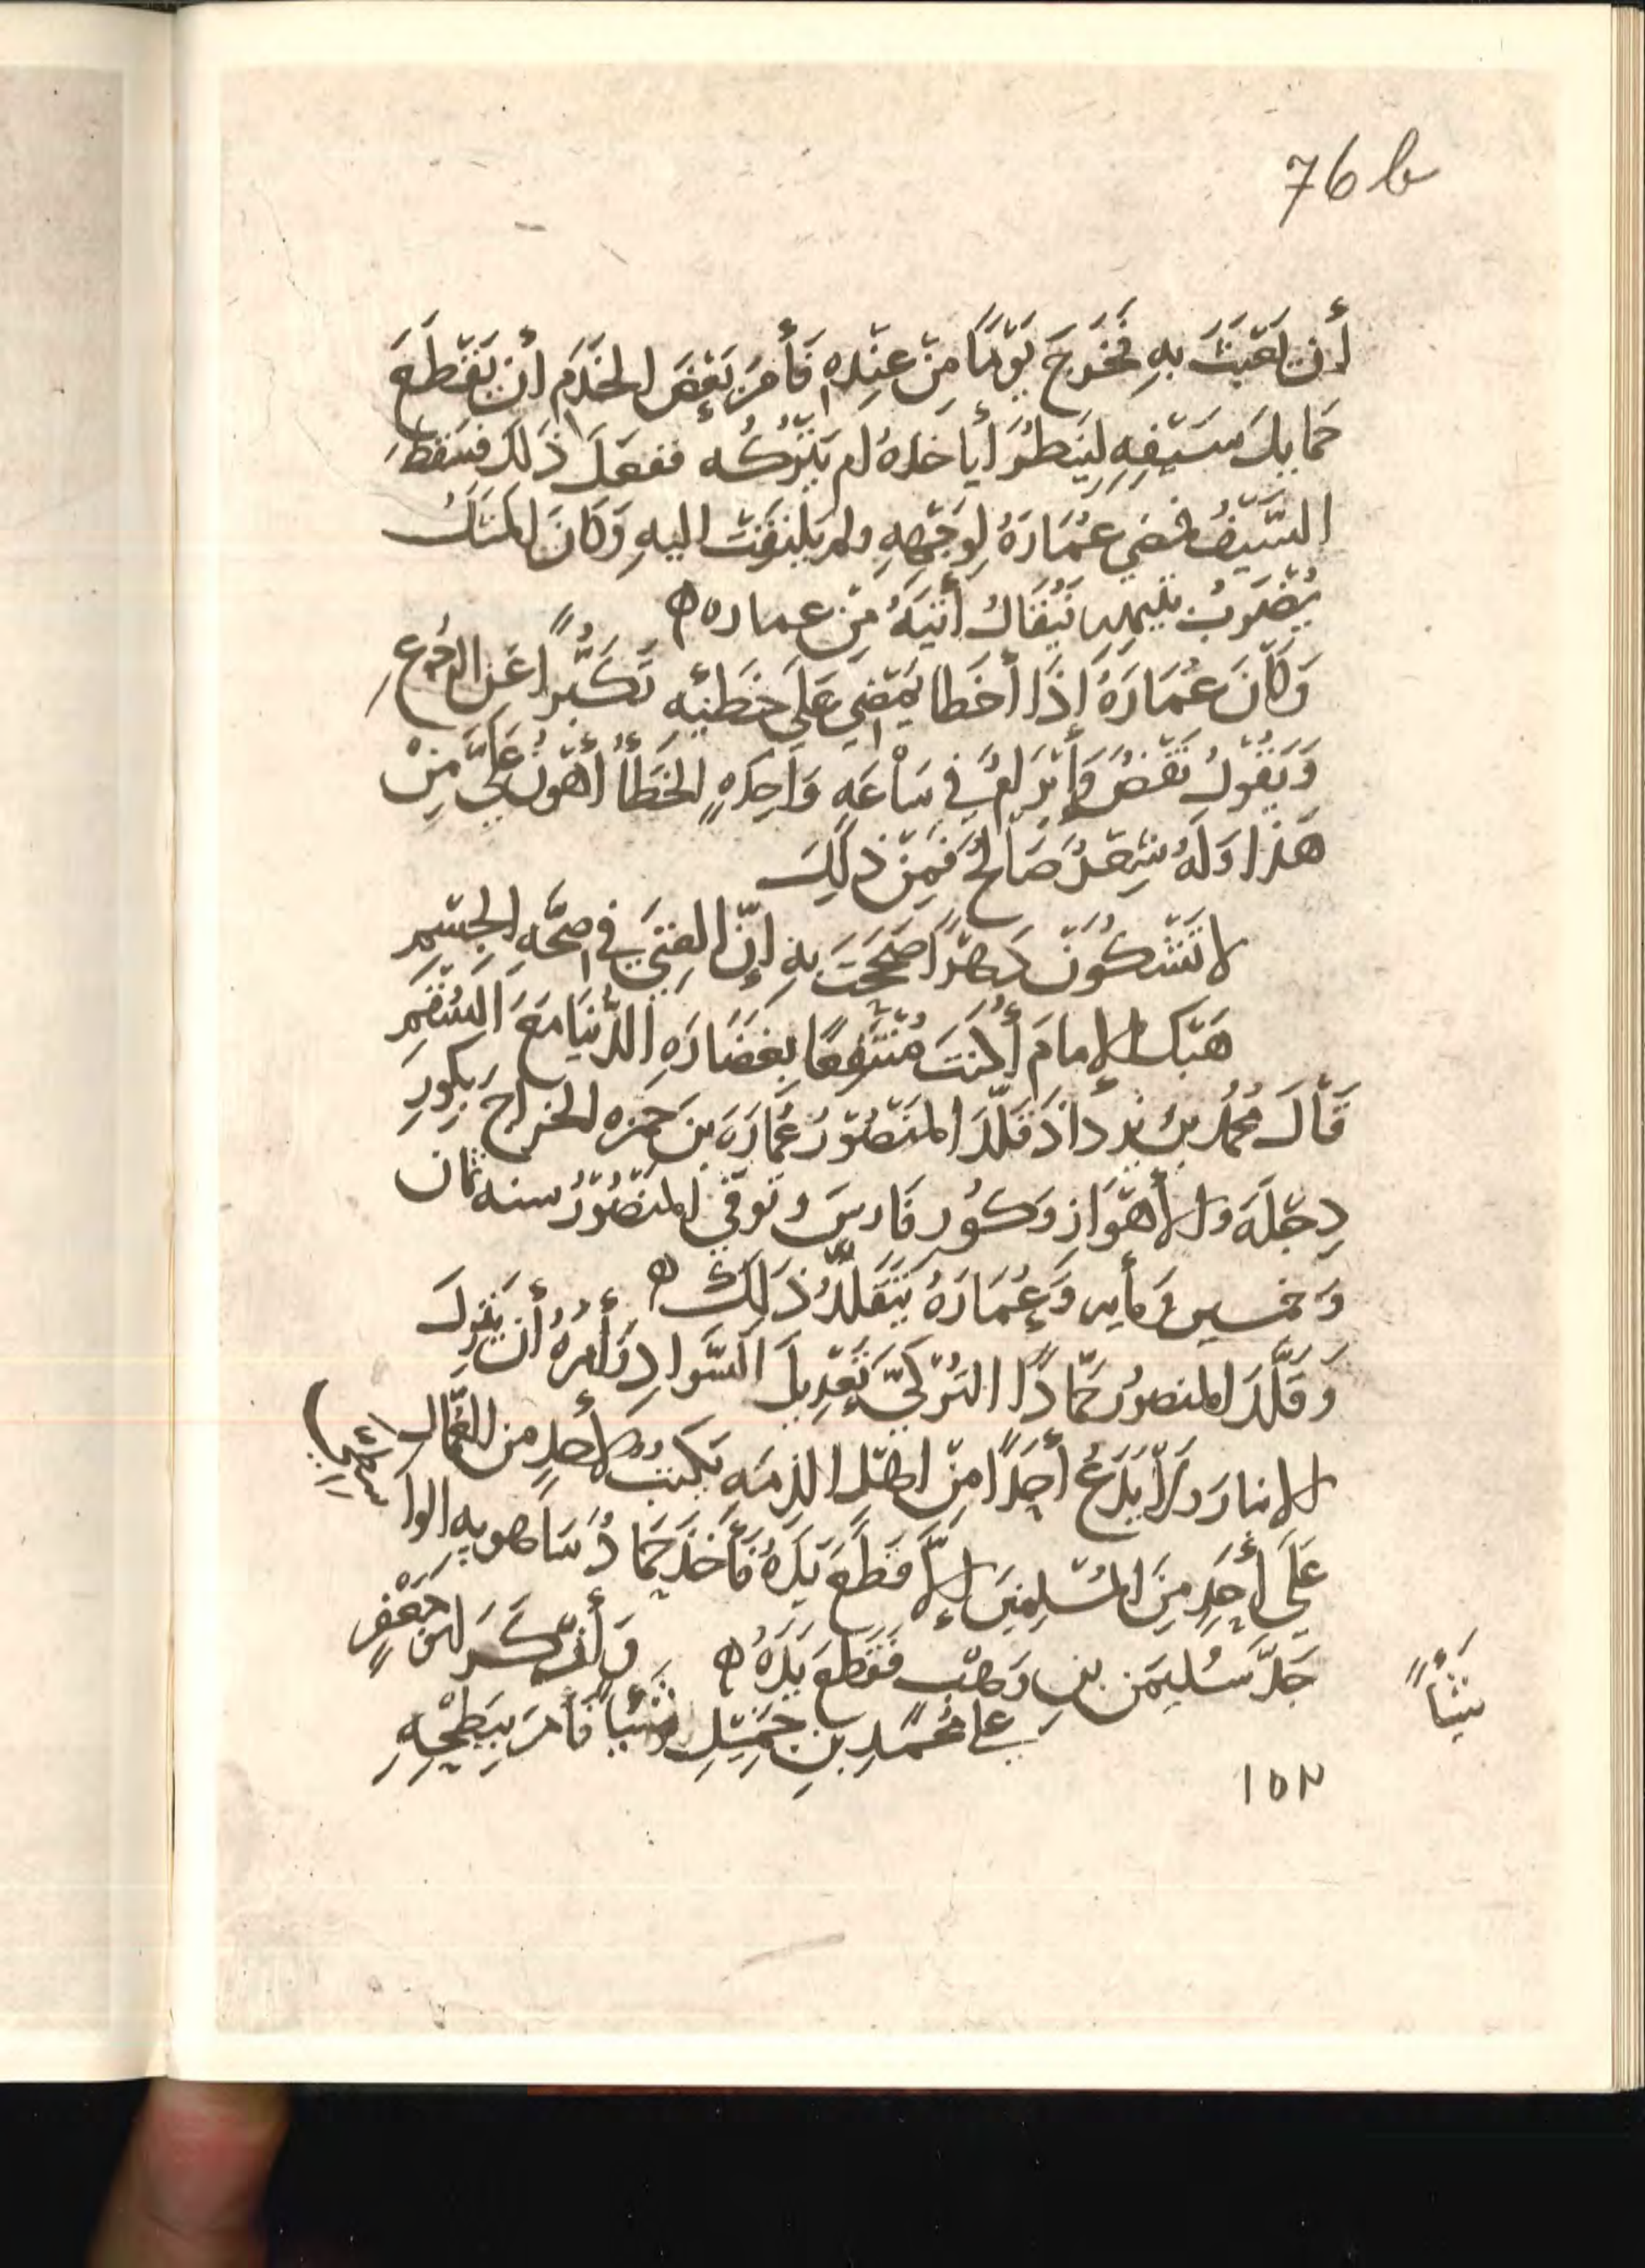 76 b
أن يَعْبَثَ بهِ فخَرَجَ يَوْمًا مِنْ عِنْدِهِ فَأَمَرَ بَعْضَ الخَدَمِ أن يَقْطَعَ
حَمايِلَ سَيْفِهِ لِيَنظُرَ أيأخذهُ أم يَتْرُكُه ففعَلَ ذلك فسَقَطَ
السَّيْفُ فمضي عُمَارَةُ لِوَجْهِهِ ولم يَلْتَفِتْ اليهِ وَكَانَ المَثَلُ
يُضْرَبُ بتيهه يُقَالُ أَتْيَهُ مِنْ عماره ه
وَكَانَ عُمَارَةُ إذَا أخطا يَمْضِي عَلَى خَطَئِهِ تَكَبُّرًا عَنِ الرجُوعِ
وَيَقُولُ نَقْضٌ وَإِبْرَامٌ فِي سَاعَهٍ وَاحِدَهٍ الخَطَأُ أهْوَنُ عَلَيَّ مِنْ
هَذا وَلَهُ شِعْرٌ صَالِحٌ فَمِنْ ذلِكَ
لا تَشْكُوَنْ دَهْرًا صَحَحْتَ بِهِ إنَّ الغِنَى فِي صِحَّهِ الجِسْمِ
هَبْكَ الإمامَ أكُنتَ مُنْتَفِعًا بِغَضَارَهِ الدُّنْيَا مَعَ السُّقْمِ
قَالَ مُحمَّد بنُ يزدَاذَ قَلَّدَ المَنْصُورُ عُمَارَةَ بنَ حمزه الخراجَ بِكورِ
دِجْلَهَ والأهْوَازِ وَكُوَر فَارِسَ وتوفي المَنْصُورُ سنه ثمان
وَخمسين وَمأيه وَعُمَارَهُ يَتَقَلَّدُ ذَلِكَ ه
وَقَلَّدَ المنصورُ حَمَّادًا التُرْكيَّ تَعْدِيلَ السَّوادِ وَأَمَرَهُ أن يَنْزِلَ
الانبارَ وَلَا يَدَعَ أحَدًا مِنْ اهْلِ الذِمَه يَكتُبُ لأحَدٍ من العُمَّال
عَلَى أحَدٍ مِنَ المُسْلِمِينَ إلَّا قَطَعَ يَدَهُ فَأخَذَ حَمَّادُ مَاهويه الوا
جَدَّ سُلَيمَن بنِ وَهْب فقَطَعَ يَدَهُ ه وَأنْكَرَ ابو جَعْفرٍ
علي مُحَمَّدِ بنِ جَمِيْلٍ شَيْأً فَأمَرَ بِبَطْحِهِ
شَيْأً
١٥٣